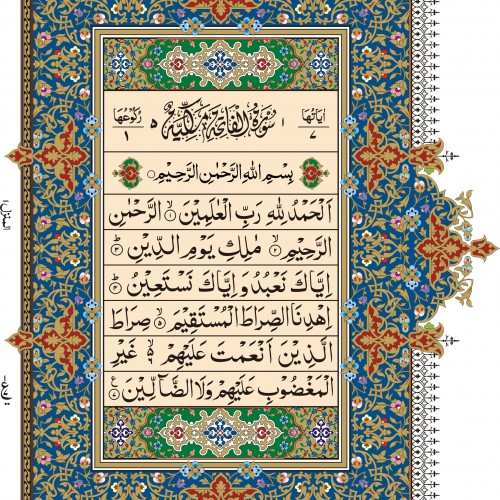 اٰیَاتُهَا ۷ ۱ سُوْرَةُ الْفَاتِحَةِ مَكِّيَّةٌ ۵ رُكُوْعُهَا ۱
بِسْمِ اللهِ الرَّحْمٰنِ الرَّحِيْمِ
اَلْحَمْدُ لِلّٰهِ رَبِّ الْعٰلَمِيْنَ ۱ الرَّحْمٰنِ
الرَّحِيْمِ ۲ مٰلِكِ يَوْمِ الدِّيْنِ ۳
اِيَّاكَ نَعْبُدُ وَ اِيَّاكَ نَسْتَعِيْنُ ۴
اِهْدِنَا الصِّرَاطَ الْمُسْتَقِيْمَ ۵ صِرَاطَ
الَّذِيْنَ اَنْعَمْتَ عَلَيْهِمْ ۶ غَيْرِ
الْمَغْضُوْبِ عَلَيْهِمْ وَلَا الضَّآلِّيْنَ ۷ ع
المنزل ۱